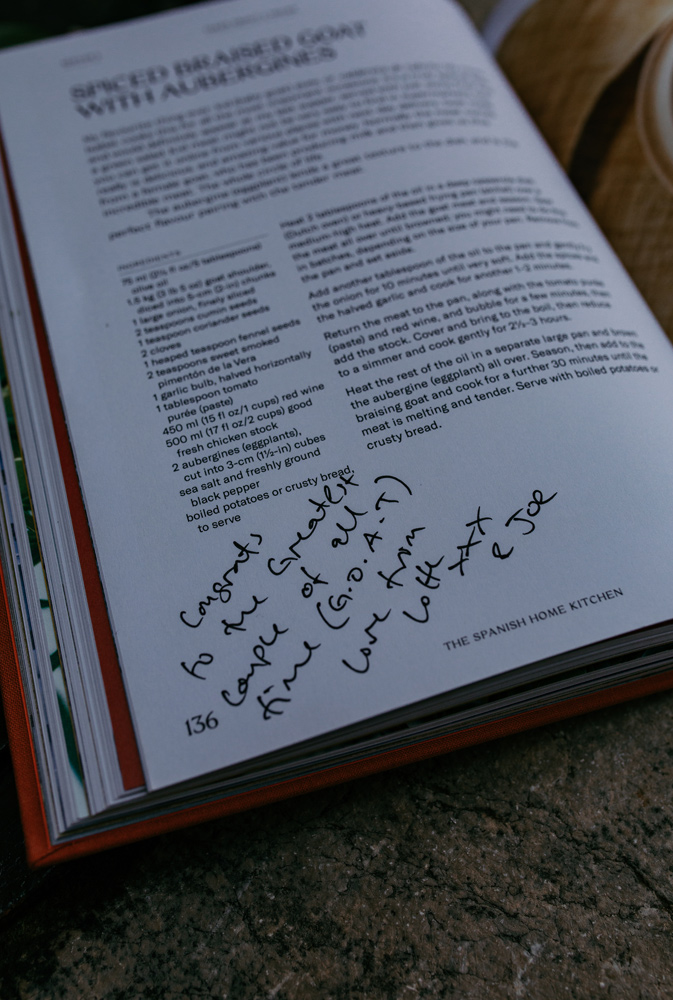 SPICED BRAISED GOAT
WITH AUBERGINES
perfect flavour pairing with the tender meat.
INGREDIENTS
75 ml (2½ fl oz/5 tablespoons)
olive oil
1.5 kg (3 lb 5 oz) goat shoulder,
diced into 5-cm (2-in) chunks
1 large onion, finely sliced
2 teaspoons cumin seeds
1 teaspoon coriander seeds
2 cloves
1 heaped teaspoon fennel seeds
2 teaspoons sweet smoked
pimentón de la Vera
1 garlic bulb, halved horizontally
1 tablespoon tomato
purée (paste)
450 ml (15 fl oz/1 cups) red wine
500 ml (17 fl oz/2 cups) good
fresh chicken stock
2 aubergines (eggplants),
cut into 3-cm (1½-in) cubes
sea salt and freshly ground
black pepper
boiled potatoes or crusty bread,
to serve
Heat 2 tablespoons of the oil in a deep
medium high heat. Add the goat meat and
the meat all over until browned; you might
in batches, depending on the size of your pan.
the pan and set aside.
Add another tablespoon of the oil to the pan and gently fry
the onion for 10 minutes until very soft. Add the spices and
the halved garlic and cook for another 1–2 minutes.
Return the meat to the pan, along with the tomato purée
(paste) and red wine, and bubble for a few minutes, then
add the stock. Cover and bring to the boil, then reduce
to a simmer and cook gently for 2½–3 hours.
Heat the rest of the oil in a separate large pan and brown
the aubergine (eggplant) all over. Season, then add to the
braising goat and cook for a further 30 minutes until the
meat is melting and tender. Serve with boiled potatoes or
crusty bread.
Congrats,
to the Greatest
couple of all
time (G.O.A.T)
Love from
Lotte xxx
& Joe
136
THE SPANISH HOME KITCHEN